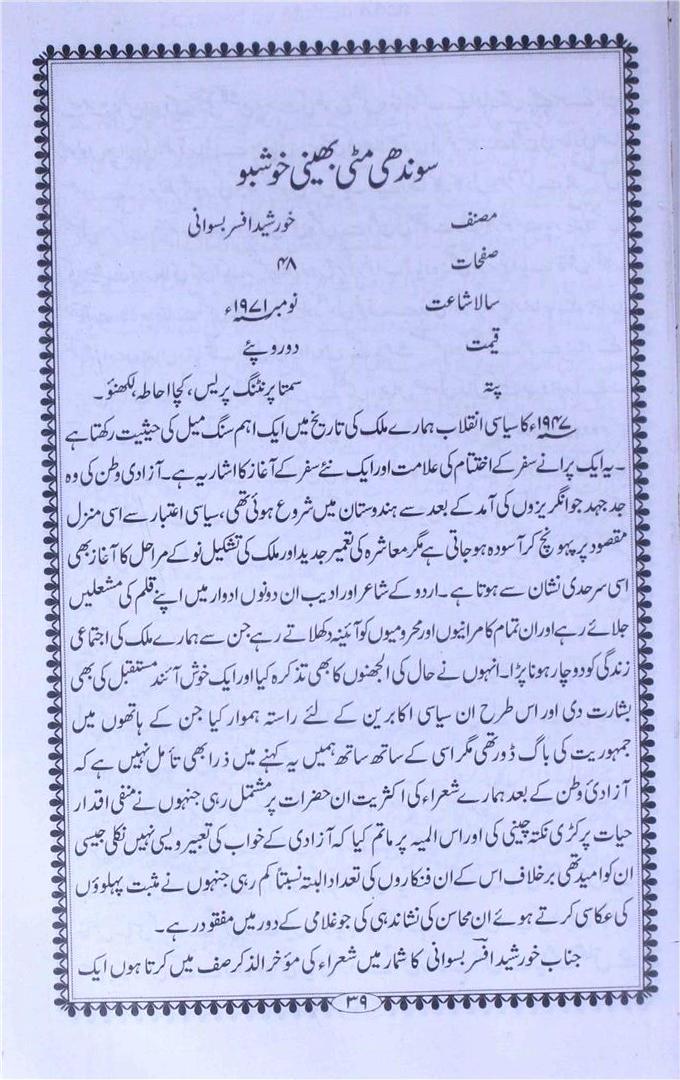 سوندھی مٹی بھینی خوشبو
مصنف خورشید افسر بسوانی
صفحات ۴۸
سال اشاعت نومبر ۱۹۷۱ء
قیمت دو روپئے
پتہ سمتا پرنٹنگ پریس، کچا احاطہ، لکھنؤ۔
۱۹۴۷ء کا سیاسی انقلاب ہمارے ملک کی تاریخ میں ایک اہم سنگ میل کی حیثیت رکھتا ہے
۔ یہ ایک پرانے سفر کے اختتام کی علامت اور ایک نئے سفر کے آغاز کا اشاریہ ہے۔ آزادی وطن کی وہ
جدجہد جو انگریزوں کی آمد کے بعد سے ہندوستان میں شروع ہوئی تھی، سیاسی اعتبار سے اسی منزل
مقصود پر پہونچ کر آسودہ ہو جاتی ہے مگر معاشرہ کی تعمیر جدید اور ملک کی تشکیل نو کے مراحل کا آغاز بھی
اسی سرحدی نشان سے ہوتا ہے۔ اردو کے شاعر اور ادیب ان دونوں ادوار میں اپنے قلم کی مشعلیں
جلائے رہے اور ان تمام کامرانیوں اور محرومیوں کو آئینہ دکھلاتے رہے جن سے ہمارے ملک کی اجتماعی
زندگی کو دوچار ہونا پڑا۔ انہوں نے حال کی الجھنوں کا بھی تذکرہ کیا اور ایک خوش آئند مستقبل کی بھی
بشارت دی اور اس طرح ان سیاسی اکابرین کے لئے راستہ ہموار کیا جن کے ہاتھوں میں
جمہوریت کی باگ ڈور تھی مگر اسی کے ساتھ ساتھ ہمیں یہ کہنے میں ذرا بھی تأمل نہیں ہے کہ
آزادئ وطن کے بعد ہمارے شعراء کی اکثریت ان حضرات پر مشتمل رہی جنہوں نے منفی اقدار
حیات پر کڑی نکتہ چینی کی اور اس المیہ پر ماتم کیا کہ آزادی کے خواب کی تعبیر ویسی نہیں نکلی جیسی
ان کو امید تھی برخلاف اس کے ان فنکاروں کی تعداد البتہ نسبتاً کم رہی جنہوں نے مثبت پہلوؤں
کی عکاسی کرتے ہوئے ان محاسن کی نشاندہی کی جو غلامی کے دور میں مفقود رہے۔
جناب خورشید افسر بسوانی کا شمار میں شعراء کی مؤخر الذکر صف میں کرتا ہوں ایک
۳۹